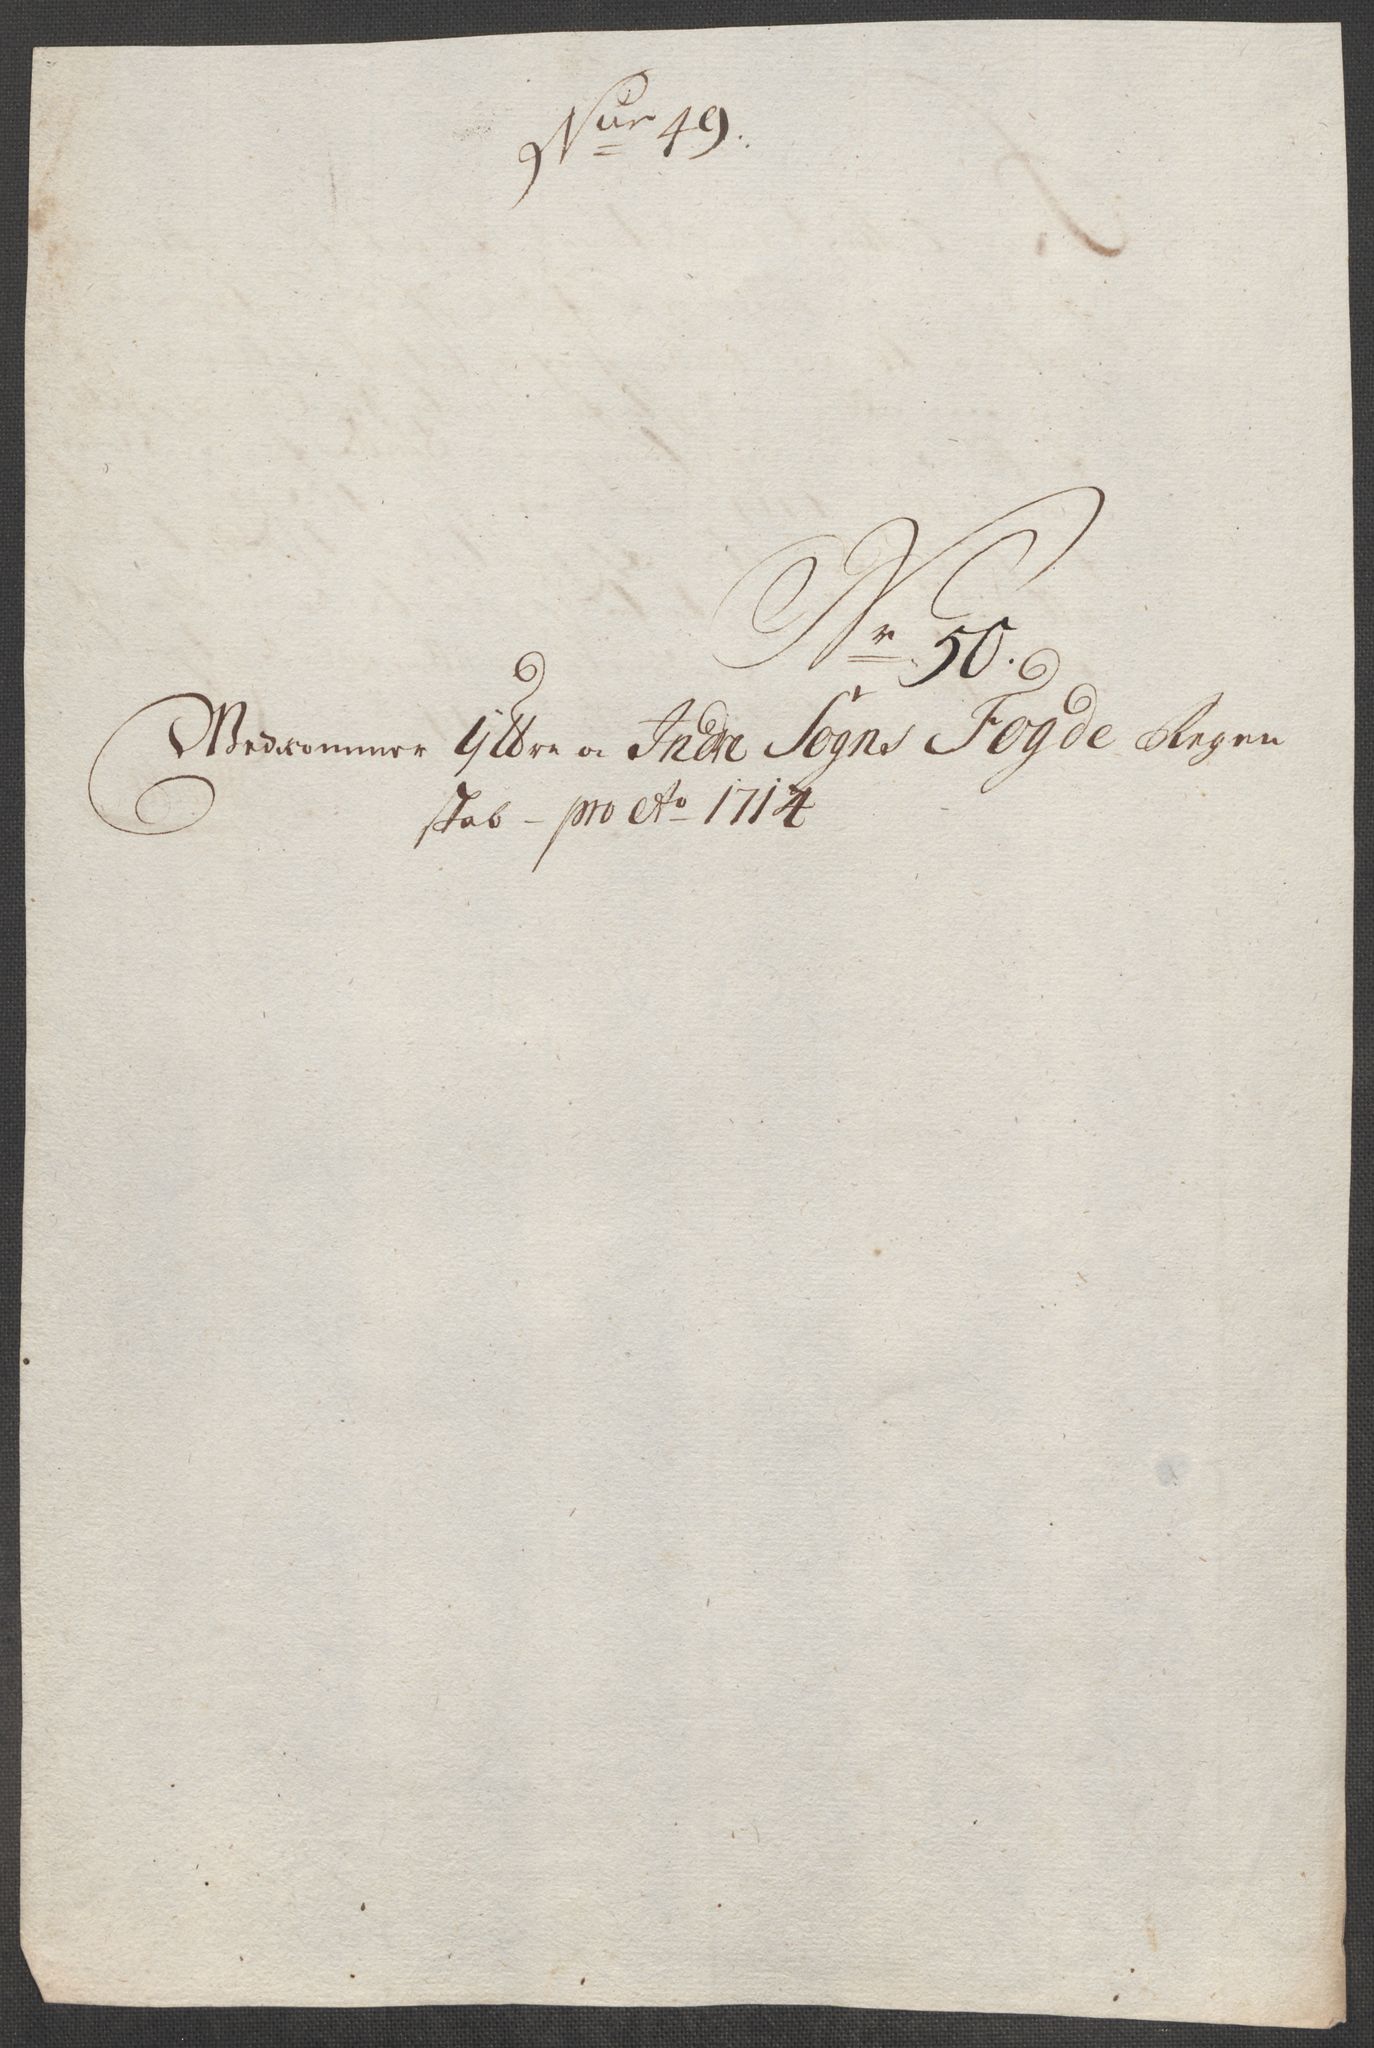 Nur 49.
Nr 50.
Wedkommer Yttre o Indre Sogns Fogde Regen
skab - pro Ao 1714